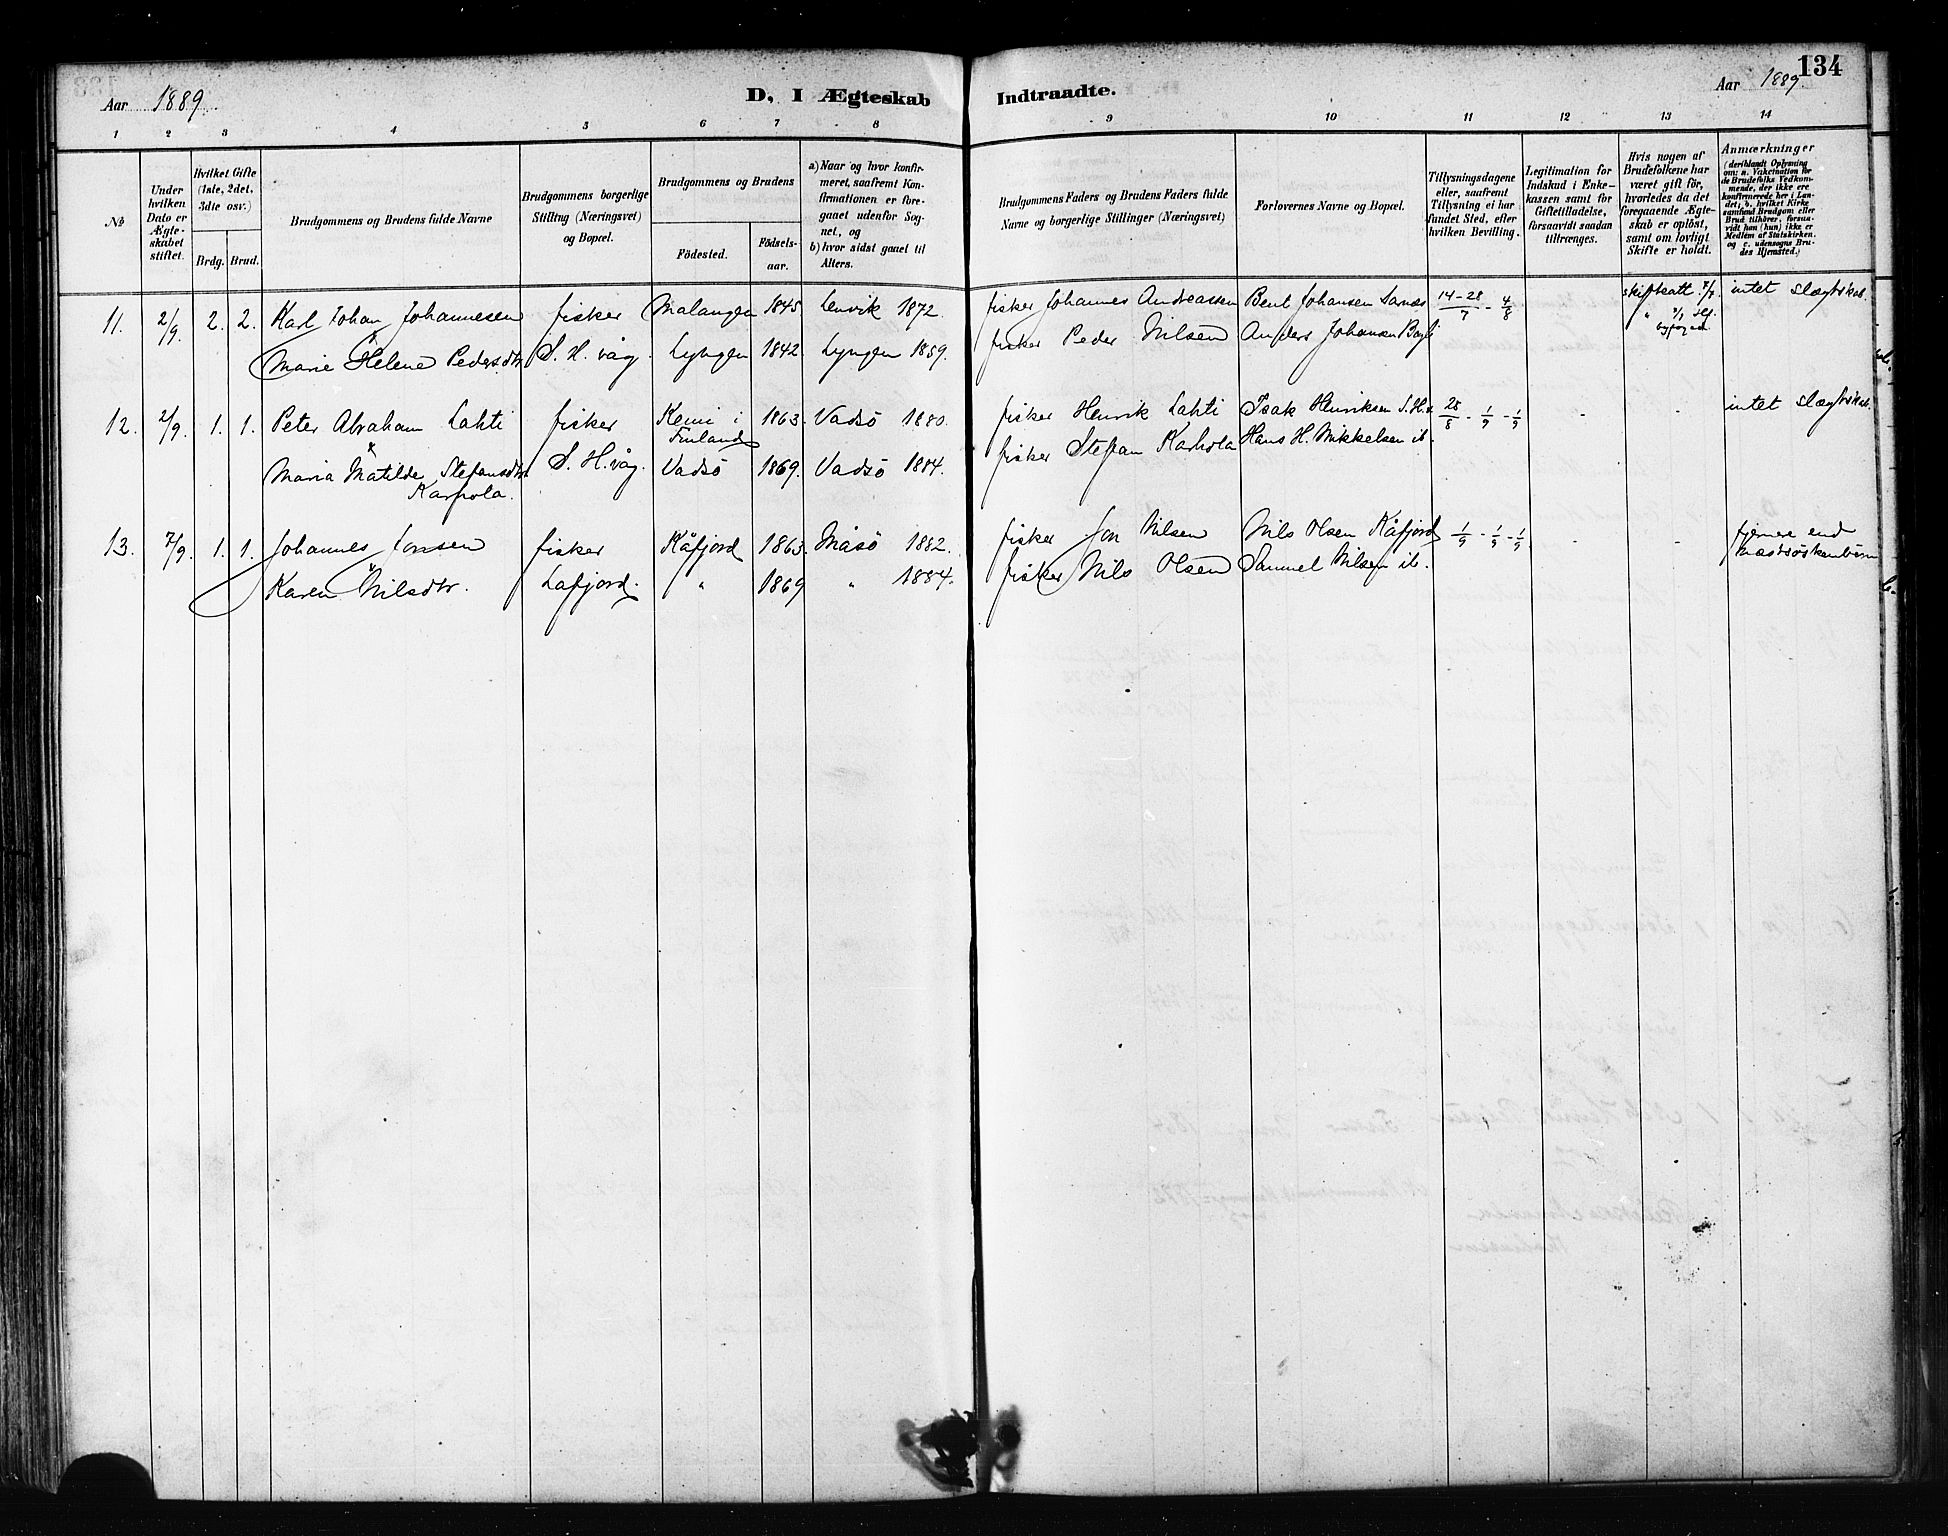 134
Aar 1889. D, I Ægteskab Indtraadte. Aar 1889.
1 2 3 4 5 6 7 8 9 10 11 12 13 14
№
Under hvilken Dato er Ægteskabet stiftet.
Hvilket Gifte (1ste, 2det, 3dte osv.)
Brdg. Brud.
Brudgommens og Brudens fulde Navne
Brudgommens borgerlige Stilling (Næringsvei) og Bopæl.
Brudgommens og Brudens
Födested. Födselsaar.
a) Naar og hvor konfirmeret, saafremt Konfirmationen er foregaaet udenfor Sognet, og
b) hvor sidst gaaet til Alters.
Brudgommens Faders og Brudens Faders fulde Navne og borgerlige Stillinger (Næringsvei)
Forlovernes Navne og Bopæl.
Tillysningsdagene eller, saafremt Tillysning ei har fundet Sted, efter hvilken Bevilling.
Legitimation for Indskud i Enkekassen samt for Giftetilladelse, forsaavidt saadan tiltrænges.
Hvis nogen af Brudefolkene har været gift för, hvorledes da det foregaaende Ægteskab er oplöst, samt om lovligt Skifte er holdt.
Anmærkninger (deriblandt Oplysning om: a. Vakcination for de Brudefolks Vedkommende, der ikke ere konfirmerede her i Landet; b. hvilket Kirkesamfund Brudgom eller Brud tilhörer, forsaavidt han (hun) ikke er Medlem af Statskirken, og c. udensogns Brudes Hjemsted.)
11. 2/9. 2. 2. Karl Johan Johannesen fisker Malangen 1845 Lenvik 1872. fisker Johannes Andreassen Bent Johansen Sarnæs 14-28/7 - 4/8 skifteatt. intet slægtskab.
Marie Helene Pedersdtr. S. H. våg. Lyngen 1842. Lyngen 1859. fisker Peder Nilsen Anders Johansen
12. 2/9. 1. 1. Peter Abraham Lahti fisker Kemi i Finland 1863. Vadsö 1880. fisker Henrik Lahti Isak Henriksen S. H. v. 28/8 - 1/9 - 1/9 - - intet slægtskab.
Maria Matilde Stefansdtr. Karpola. S. H. våg. Vadsö 1869. Vadsö 1884. fisker Stefan Karhola Hans H. Mikkelsen ib.
13. 7/9. 1. 1. Johannes Jonsen fisker Kåfjord 1863. Måsö 1882. fisker Jon Nilsen Nils Olsen Kåfjord 1/9 - 1/9 - 1/9 - - fjernere end næstsöskenbörn
Karen Nilsdtr. Lafjord. " 1869 " 1884. fisker Nils Olsen Samuel Nilsen ib.